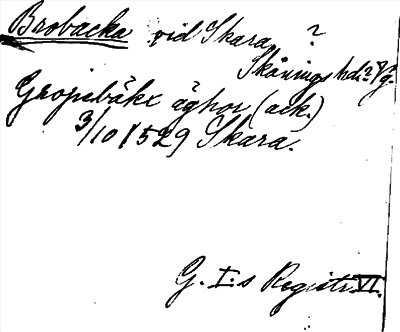 Brobacka vid Skara ?
Skånings hd. ? Vg.
Gropebäkx äghor (ack.)
3/10 1529 Skara.
G. I:s Registr. VI.